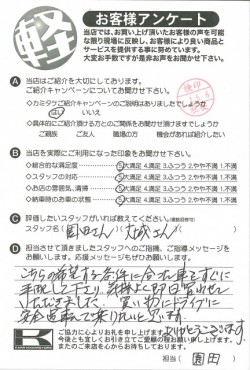 軽
お客様アンケート
当店では、お買い上げ頂いたお客様の声を可能
な限り現場に反映し、お客様により良い商品と
サービスを提供する事に努めています。
大変お手数ですが是非お声をお聞かせ下さい。
A 当店はご紹介を大切にしてあります。
ご紹介キャンペーンについてお聞かせ下さい。
◇カミタケご紹介キャンペーンのご説明はありましたでしょうか
はい いいえ
◇具体的にご紹介頂ける方とのご関係をお聞かせ頂けますでしょうか
ご親族 ご友人 職場の方 機会があれば紹介したい
B 当店を実際にご利用になった印象をお聞かせ下さい。
◇総合的な満足度 5.大満足 4.満足 3.ふつう 2.やや不満 1.不満
◇スタッフの対応 5.大満足 4.満足 3.ふつう 2.やや不満 1.不満
◇お店の雰囲気、清掃 5.大満足 4.満足 3.ふつう 2.やや不満 1.不満
◇納車時のお車の状態 5.大満足 4.満足 3.ふつう 2.やや不満 1.不満
C 評価したいスタッフがいれば教えてください。
スタッフ名( 園田さん / さん )
D 担当させて頂きましたスタッフへのご指摘、ご指導メッセージを
お願いします。応援メッセージもぜひお願いします。
こちらの希望する条件に合った車をすぐに
手配して下さり、気持よく即日買わせて
いただきました。買い物にドライブに
安全運転で乗りたいと思います。
ありがとうございます。
K
ご協力に心よりお礼を申し上げます。
今後とも宜しくお引き立てご愛顧の程お願い申し上げます。
またのご来店を心からお待ちしております。
担当( 園田 )